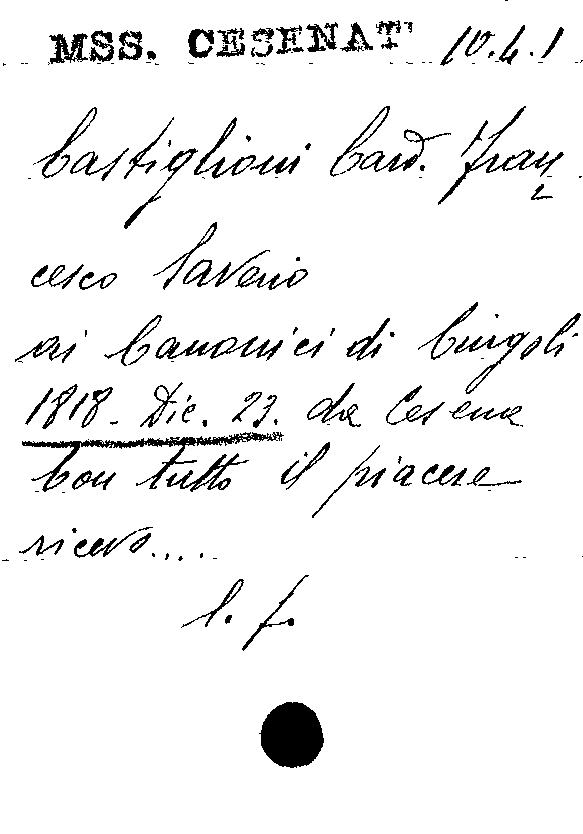 MSS. CESENATI 10.4.1
Castiglioni Card. Fran
cesco Saverio
ai Canonici di Cingoli
1818 - Dic. 23. da Cesena
Con tutto il piacere
ricevo....
l. f.